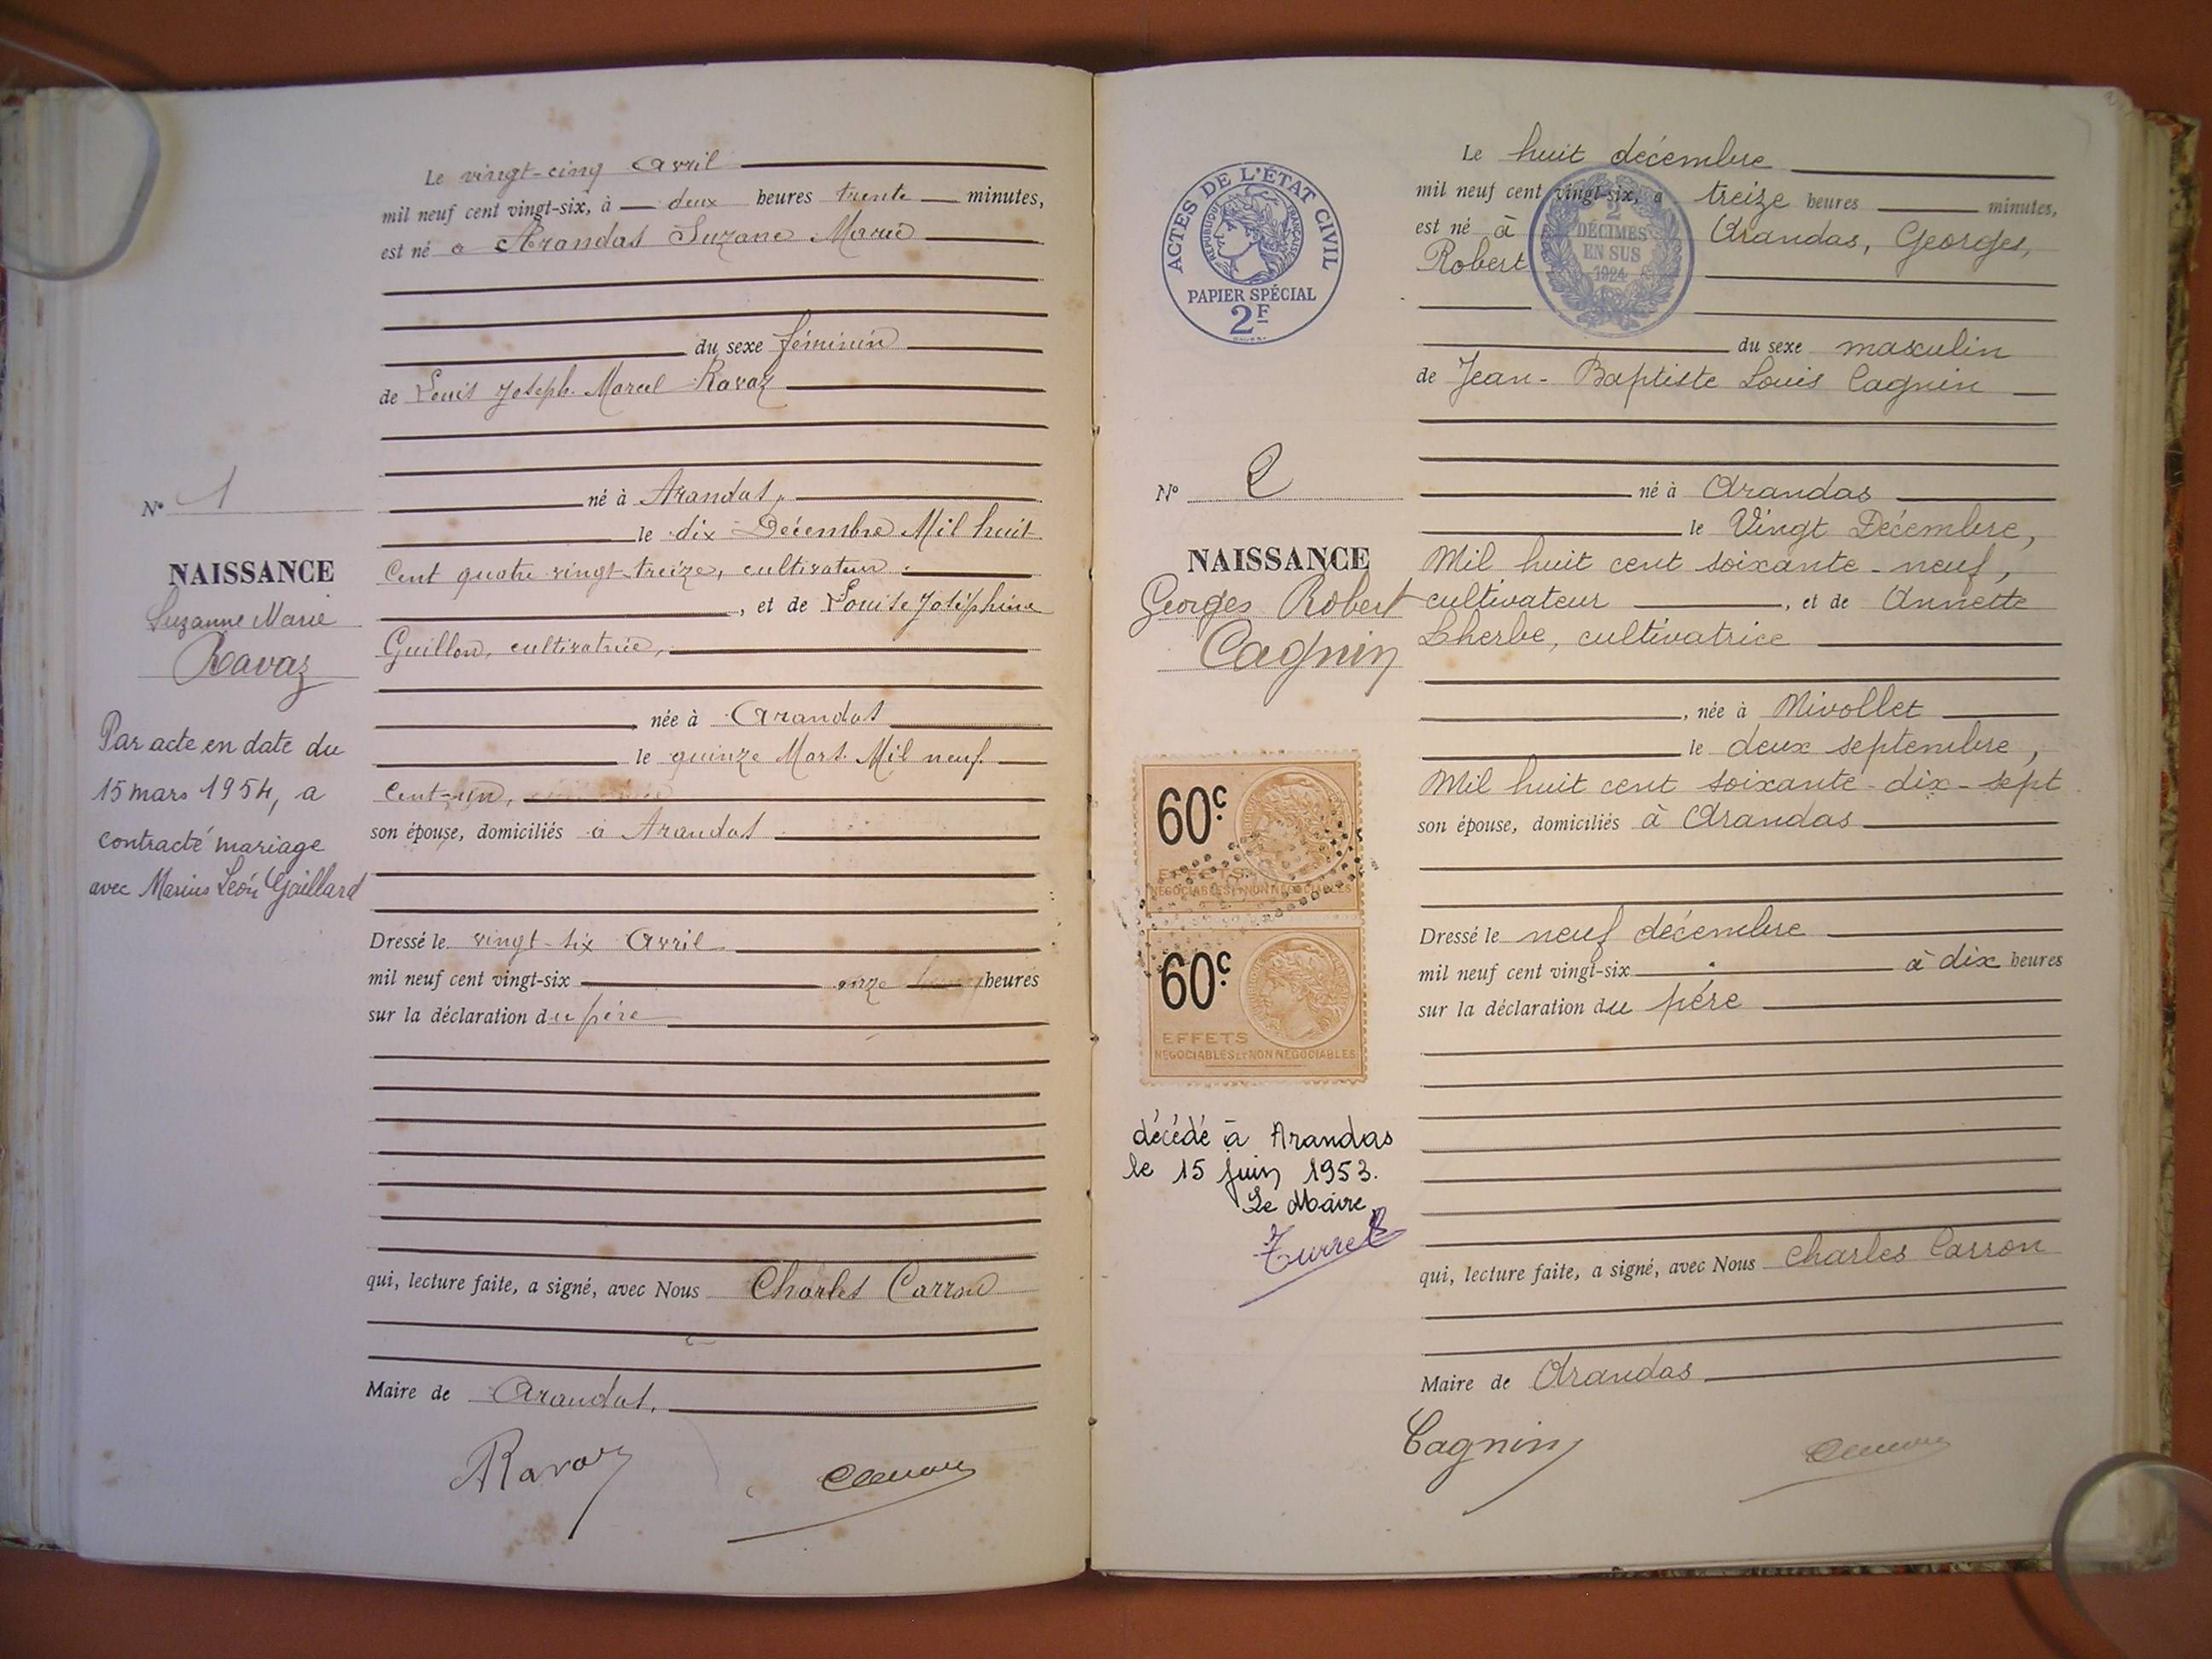 Le vingt-cinq Avril
mil neuf cent vingt-six, à deux heures trente minutes,
est né a Arandas Suzane Marie
du sexe féminin
de Louis Joseph Marcel Ravaz
né à Arandas,
le dix Décembre Mil huit
Cent quatre vingt-treize, cultivateur
, et de Louise Joséphine
Guillon, cultivatrice,
née à Arandas
le quinze Mars Mil neuf
Cent-un,
son épouse, domiciliés à Arandas
Dressé le vingt-six Avril
mil neuf cent vingt-six onze heures
sur la déclaration du père
qui, lecture faite, a signé, avec Nous Charles Carron
Maire de Arandas,
Ravaz
Nº 1
NAISSANCE
Suzanne Marie
Ravaz
Par acte en date du
15 mars 1954, a
contracté mariage
avec Marius Léon Gaillard
ACTES DE L'ÉTAT CIVIL
RÉPUBLIQUE FRANÇAISE
PAPIER SPÉCIAL
2F
Nº 2
NAISSANCE
Georges Robert
Cagnin
60c
EFFETS
NÉGOCIABLES ET NON NÉGOCIABLES
60c
EFFETS
NÉGOCIABLES ET NON NÉGOCIABLES
décédé à Arandas
le 15 Juin 1953.
Le Maire
Turrel
Le huit décembre
mil neuf cent vingt-six, à treize heures minutes,
est né à Arandas, Georges,
Robert
2
DÉCIMES
EN SUS
1924
du sexe masculin
de Jean-Baptiste Louis Cagnin
né à Arandas
le Vingt Décembre,
Mil huit cent soixante-neuf,
cultivateur , et de Annette
Lherbe, cultivatrice
, née à Nivollet
le deux septembre,
Mil huit cent soixante-dix-sept
son épouse, domiciliés à Arandas
Dressé le neuf décembre
mil neuf cent vingt-six à dix heures
sur la déclaration du père
qui, lecture faite, a signé, avec Nous Charles Carron
Maire de Arandas
Cagnin